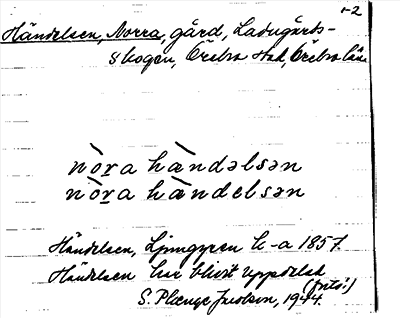 1-2
Händelsen, Norra, gård, Ladugårds-
skogen, Örebro stad, Örebro län
nòra hàndəlsən
nòra hàndelsən
Händelsen, Ljungqren k-a 1857.
Händelsen har blivit uppdelad
(förtö!)
S. Plænge Jacobson, 1944.